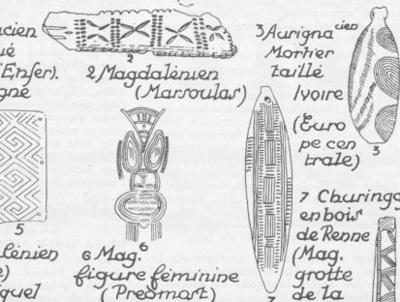 cien
2
ué
'Enfer).
gné
2 Magdalénien
(Marsoulas)
3 Aurignacien
Mortier
taillé
Ivoire
(Euro
pe cen
trale)
3
5
6
lénien
e)
iguel
6 Mag.
figure féminine
(Predmost)
7
7 Churinga
en bois
de Renne
(Mag.
grotte
de la